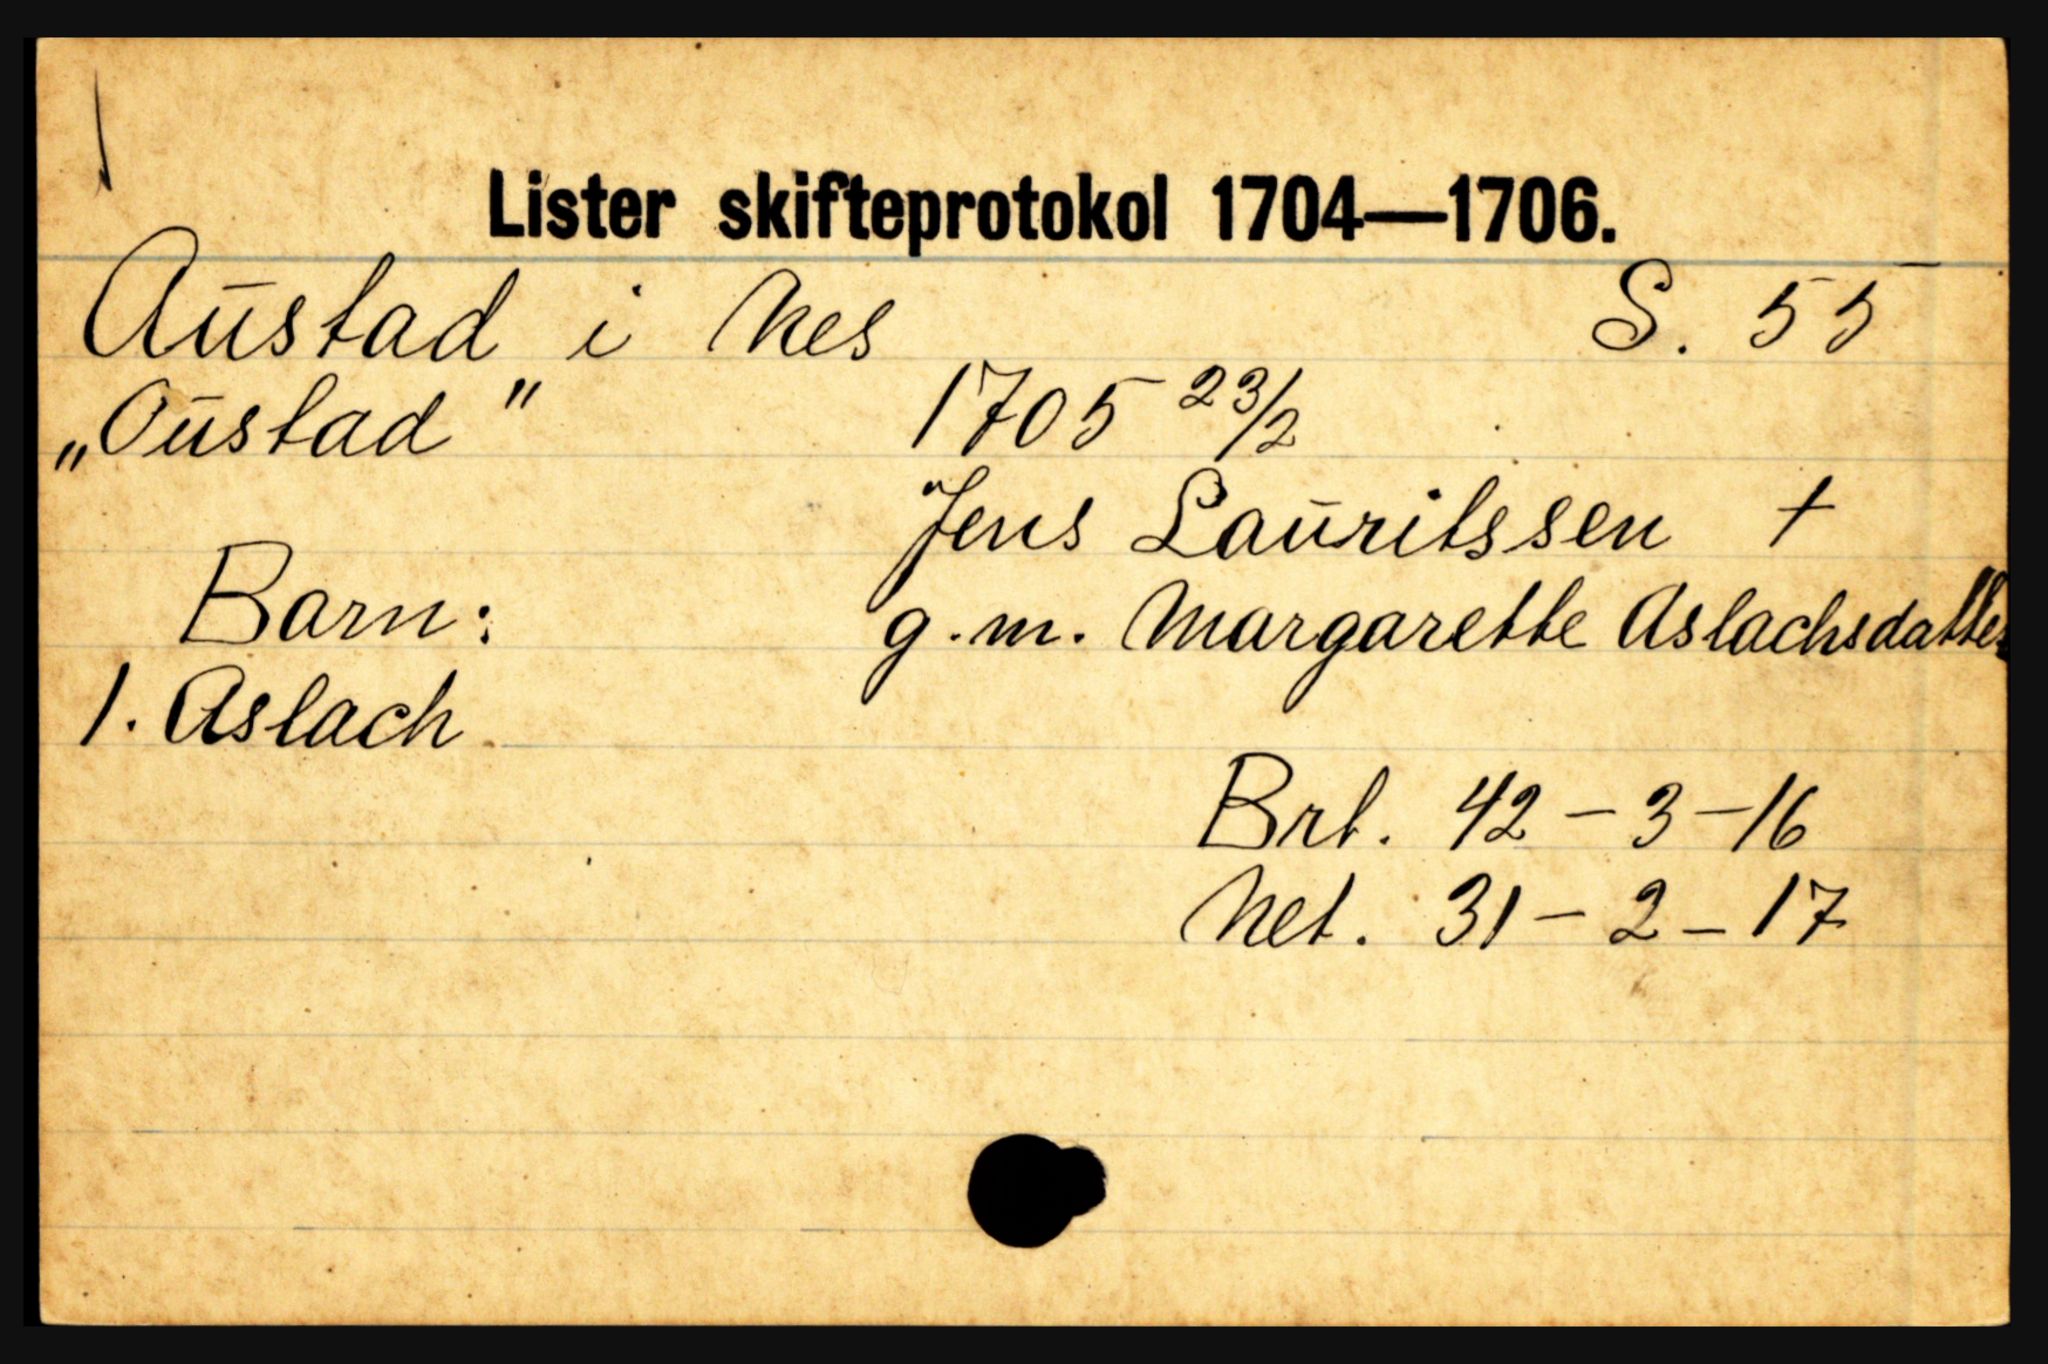 Lister skifteprotokol 1704—1706.
Austad i Nes S. 55
„Oustad" 1705 23/2
Jens Lauritssen +
Barn: g.m. Margarette Aslachsdatter
1. Aslach
Brt. 42 – 3 – 16
Net. 31 – 2 – 17